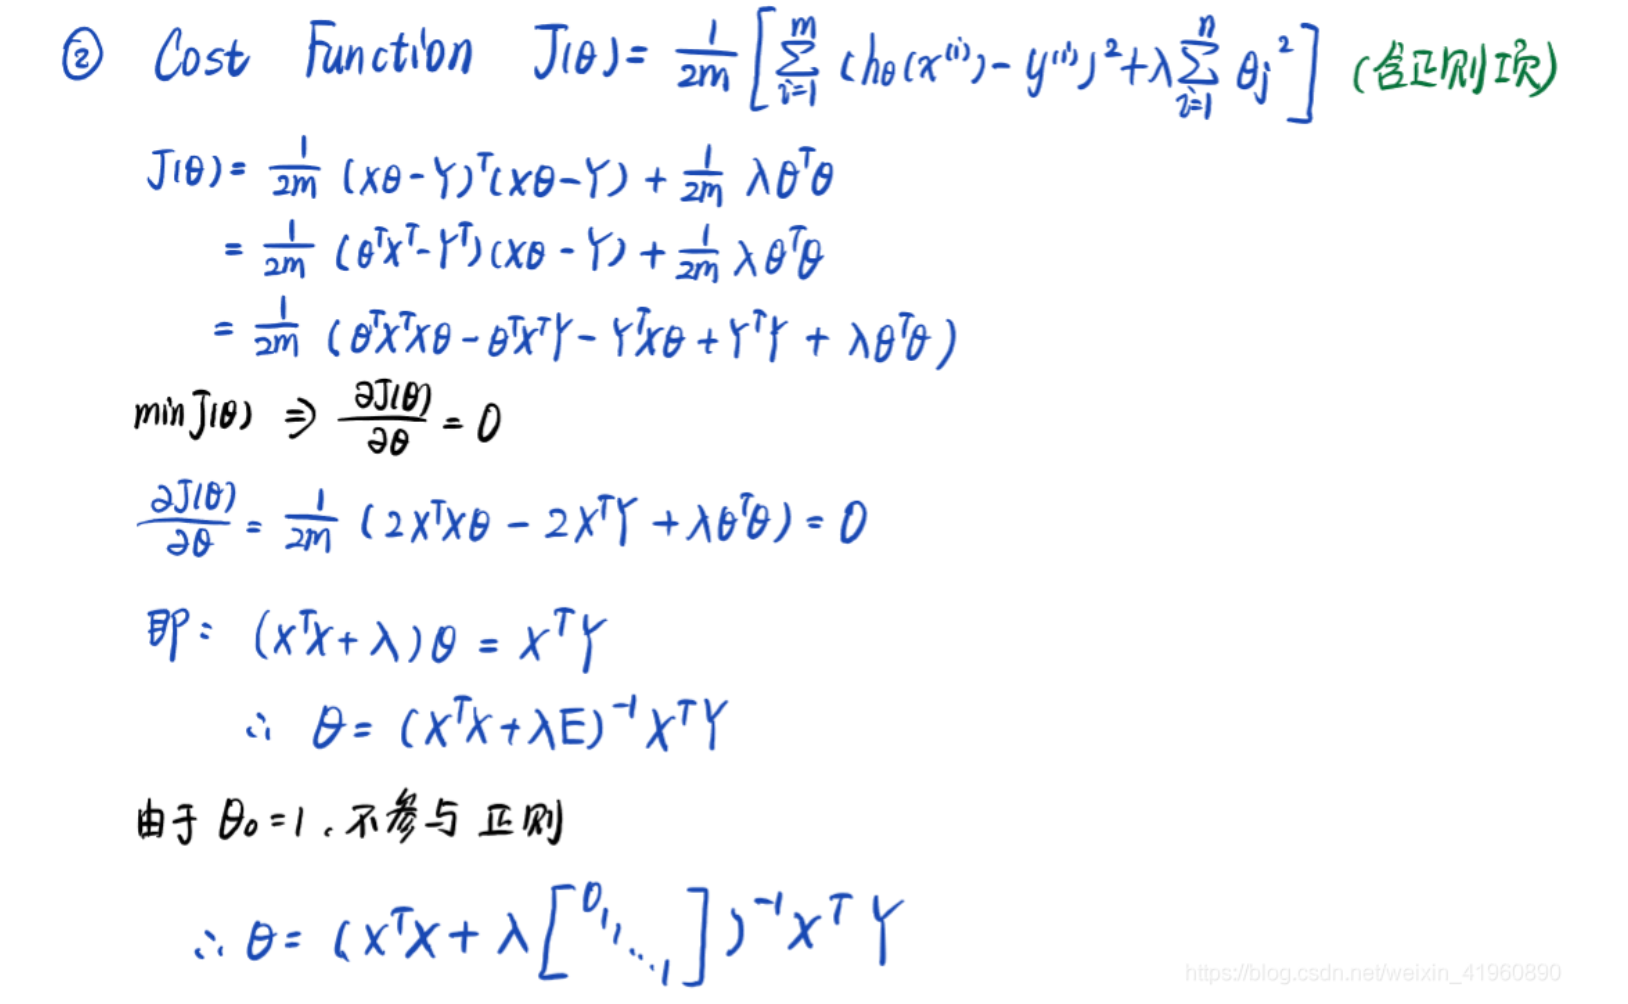 ② Cost Function J(θ)= 1/2m [ ∑_{i=1}^{m} (h_θ(x^{(i)})-y^{(i)})^2+λ∑_{i=1}^{n} θ_j^2 ] (含正则项)
J(θ)= 1/2m (Xθ-Y)^T(Xθ-Y) + 1/2m λθ^Tθ
= 1/2m (θ^TX^T-Y^T)(Xθ-Y) + 1/2m λθ^Tθ
= 1/2m (θ^TX^TXθ-θ^TX^TY-Y^TXθ+Y^TY + λθ^Tθ)
min J(θ) ⇒ ∂J(θ)/∂θ = 0
∂J(θ)/∂θ = 1/2m (2X^TXθ - 2X^TY + λθ^Tθ) = 0
即: (X^TX+λ)θ = X^TY
∴ θ= (X^TX+λE)^{-1}X^TY
由于 θ_0=1,不参与 正则
∴ θ= (X^TX+λ[0 1 1 ⋱ 1])^{-1}X^TY
https://blog.csdn.net/weixin_41960890